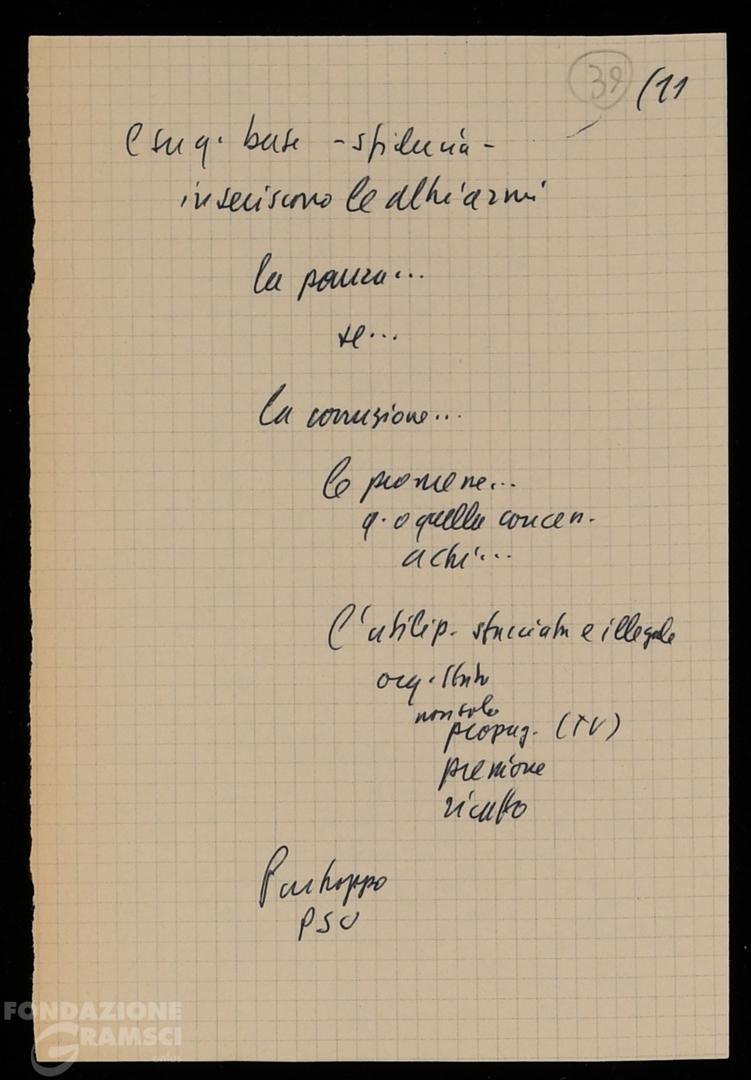 39 (11
E su q. base - sfiducia -
inseriscono le altre armi
la paura...
se...
la corruzione...
le promesse...
q. o quella concen.
a chi...
l'utiliz. sfacciata e illegale
org. Stato
non solo
propag. (TV)
pressione
ricatto
Purtroppo
PSU
FONDAZIONE
GRAMSCI
onlus